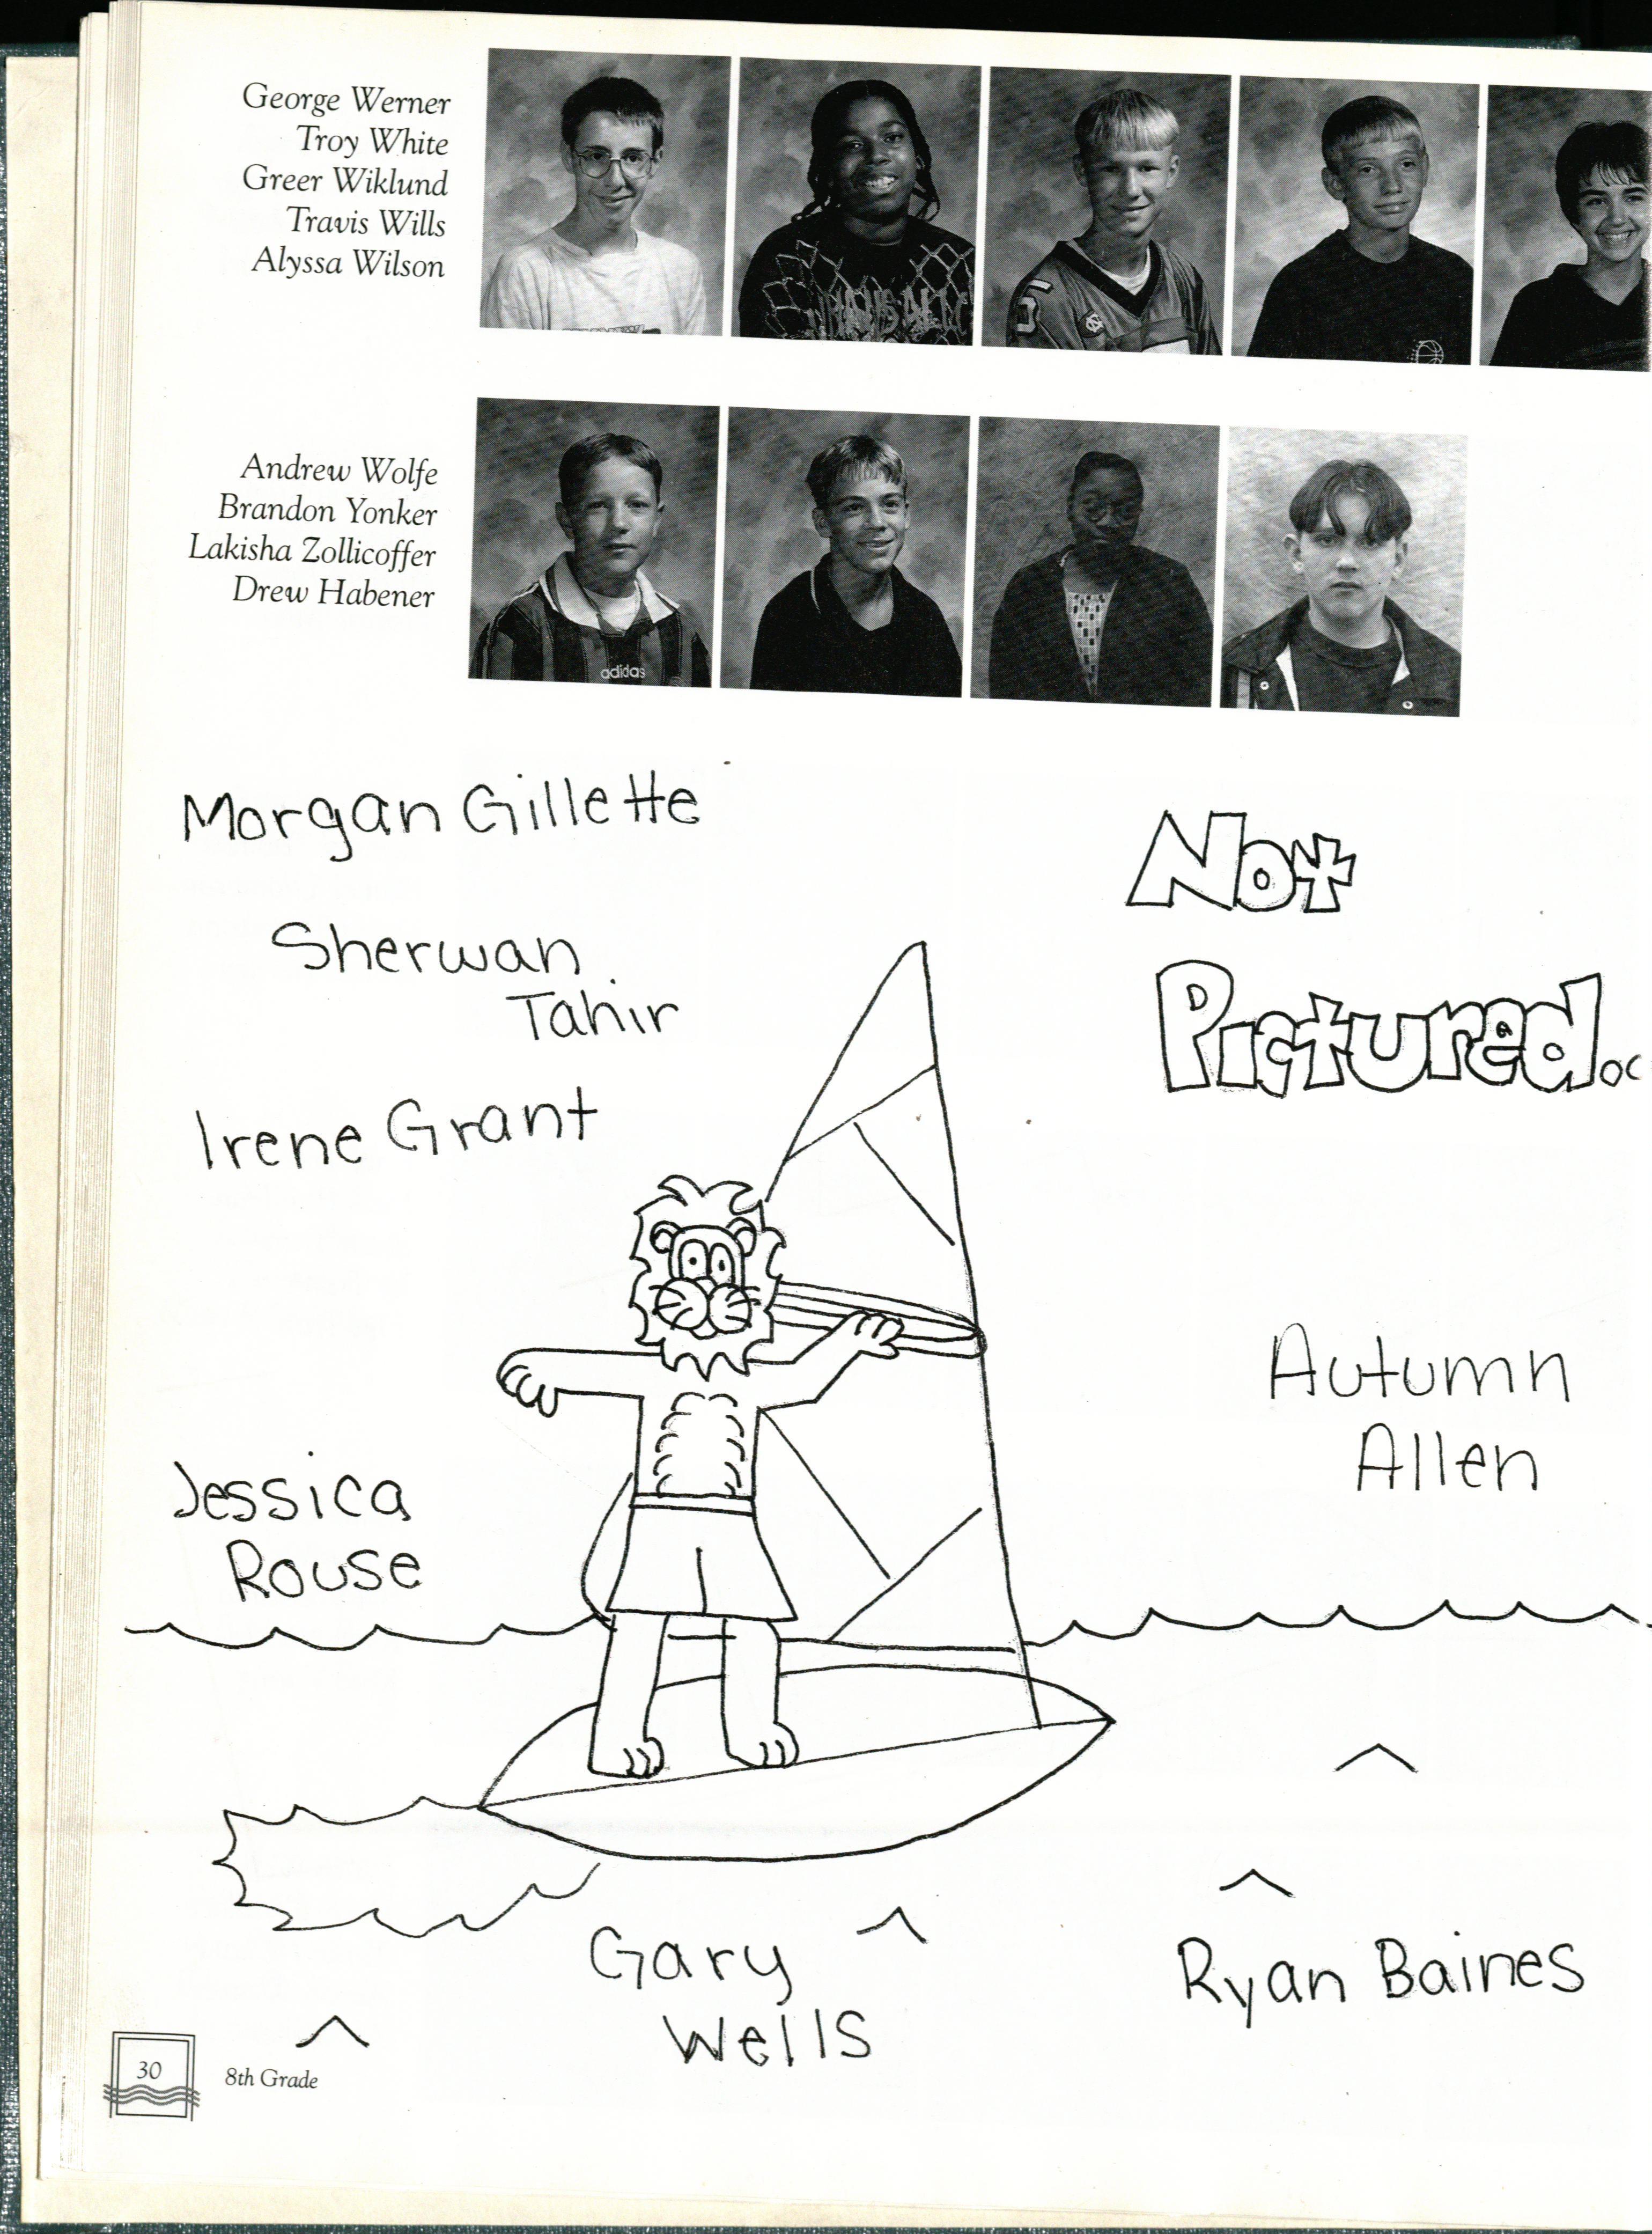 George Werner
Troy White
Greer Wiklund
Travis Wills
Alyssa Wilson
5
Andrew Wolfe
Brandon Yonker
Lakisha Zollicoffer
Drew Habener
adidas
Morgan Gillette
Not
Pictured...
Sherwan
Tahir
Irene Grant
Autumn
Allen
Jessica
Rouse
Gary
Wells
Ryan Baines
30
8th Grade